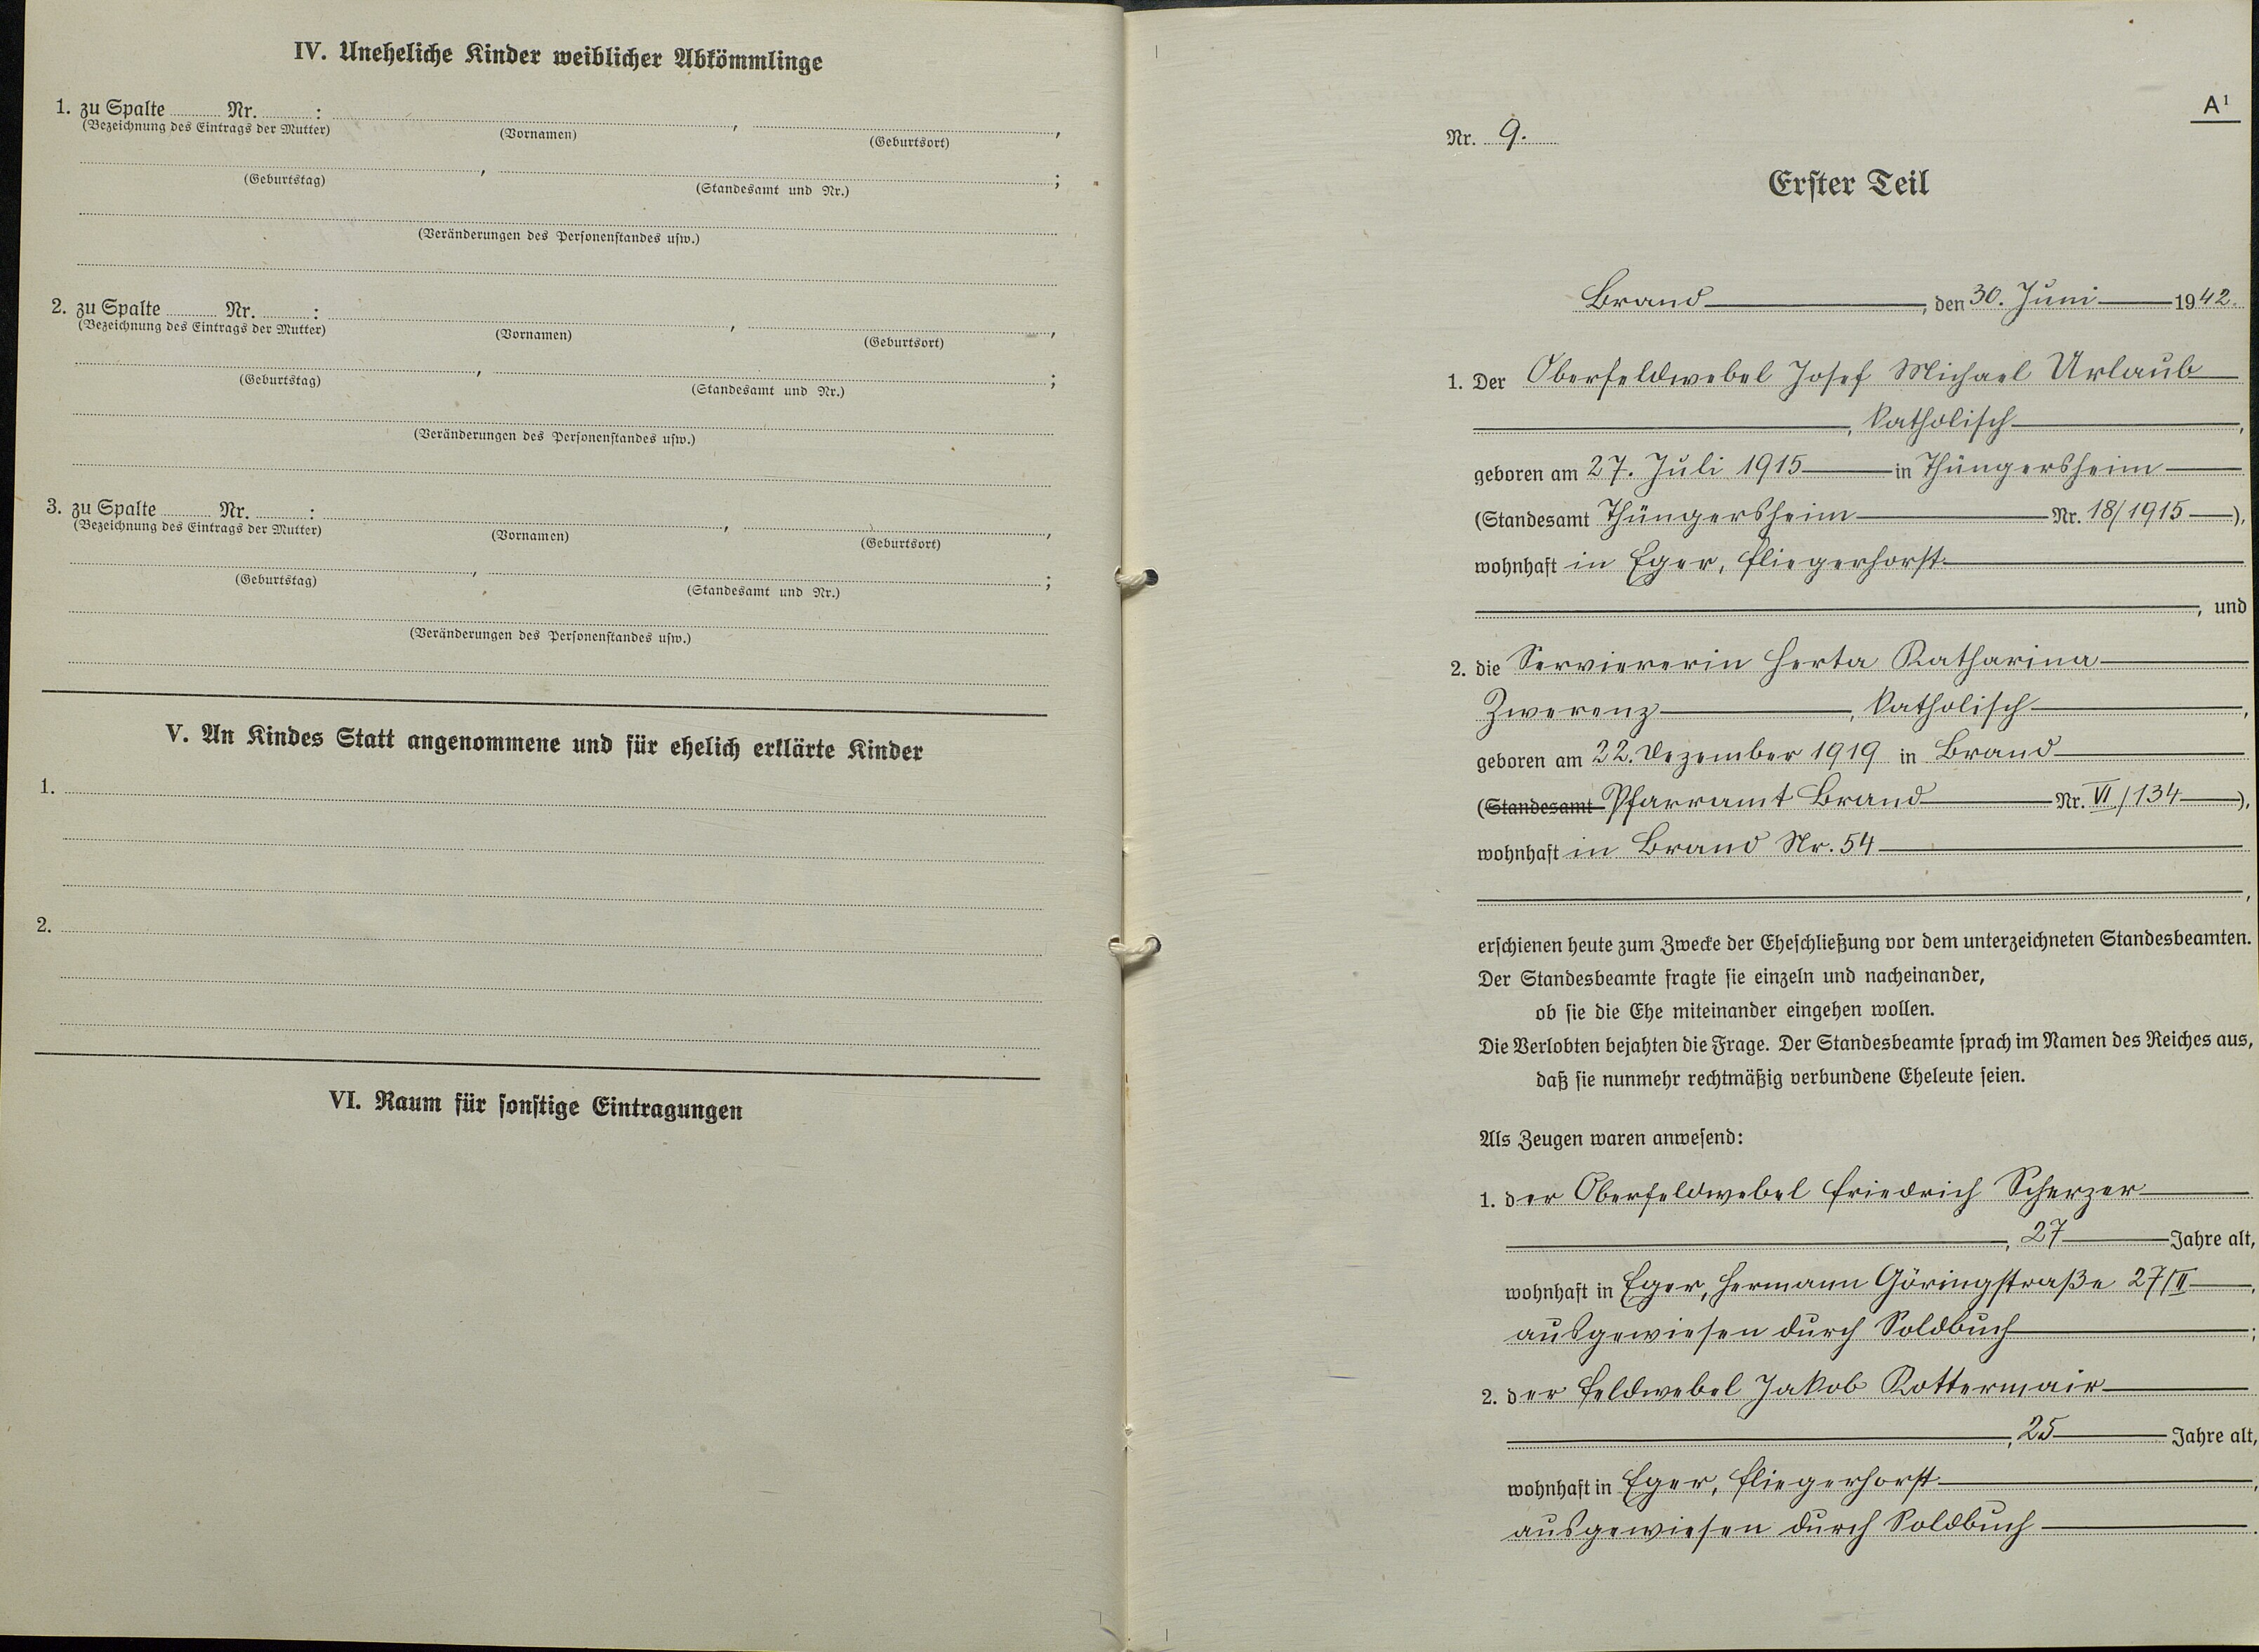 IV. Uneheliche Kinder weiblicher Abkömmlinge
1. zu Spalte ........ Nr. ........ : , ,
(Bezeichnung des Eintrags der Mutter) (Vornamen) (Geburtsort)
, ;
(Geburtstag) (Standesamt und Nr.)
(Veränderungen des Personenstandes usw.)
2. zu Spalte ........ Nr. ........ : , ,
(Bezeichnung des Eintrags der Mutter) (Vornamen) (Geburtsort)
, ;
(Geburtstag) (Standesamt und Nr.)
(Veränderungen des Personenstandes usw.)
3. zu Spalte ........ Nr. ........ : , ,
(Bezeichnung des Eintrags der Mutter) (Vornamen) (Geburtsort)
, ;
(Geburtstag) (Standesamt und Nr.)
(Veränderungen des Personenstandes usw.)
V. An Kindes Statt angenommene und für ehelich erklärte Kinder
1.
2.
VI. Raum für sonstige Eintragungen
A¹
Nr. 9.
Erster Teil
Brand, den 30. Juni 1942.
1. Der Oberfeldwebel Josef Michael Urlaub
, katholisch,
geboren am 27. Juli 1915 in Thüngersheim
(Standesamt Thüngersheim Nr. 18/1915),
wohnhaft in Eger, Fliegerhorst
, und
2. die Serviererin Herta Katharina
Zwerenz, katholisch,
geboren am 22. Dezember 1919 in Brand
(Standesamt Pfarramt Brand Nr. VI/134),
wohnhaft in Brand Nr. 54
,
erschienen heute zum Zwecke der Eheschließung vor dem unterzeichneten Standesbeamten.
Der Standesbeamte fragte sie einzeln und nacheinander,
ob sie die Ehe miteinander eingehen wollen.
Die Verlobten bejahten die Frage. Der Standesbeamte sprach im Namen des Reiches aus,
daß sie nunmehr rechtmäßig verbundene Eheleute seien.
Als Zeugen waren anwesend:
1. der Oberfeldwebel Friedrich Scherzer
, 27 Jahre alt,
wohnhaft in Eger, Hermann Göringstraße 27/II,
ausgewiesen durch Soldbuch;
2. der Feldwebel Jakob Rottermair
, 25 Jahre alt,
wohnhaft in Eger, Fliegerhorst,
ausgewiesen durch Soldbuch.